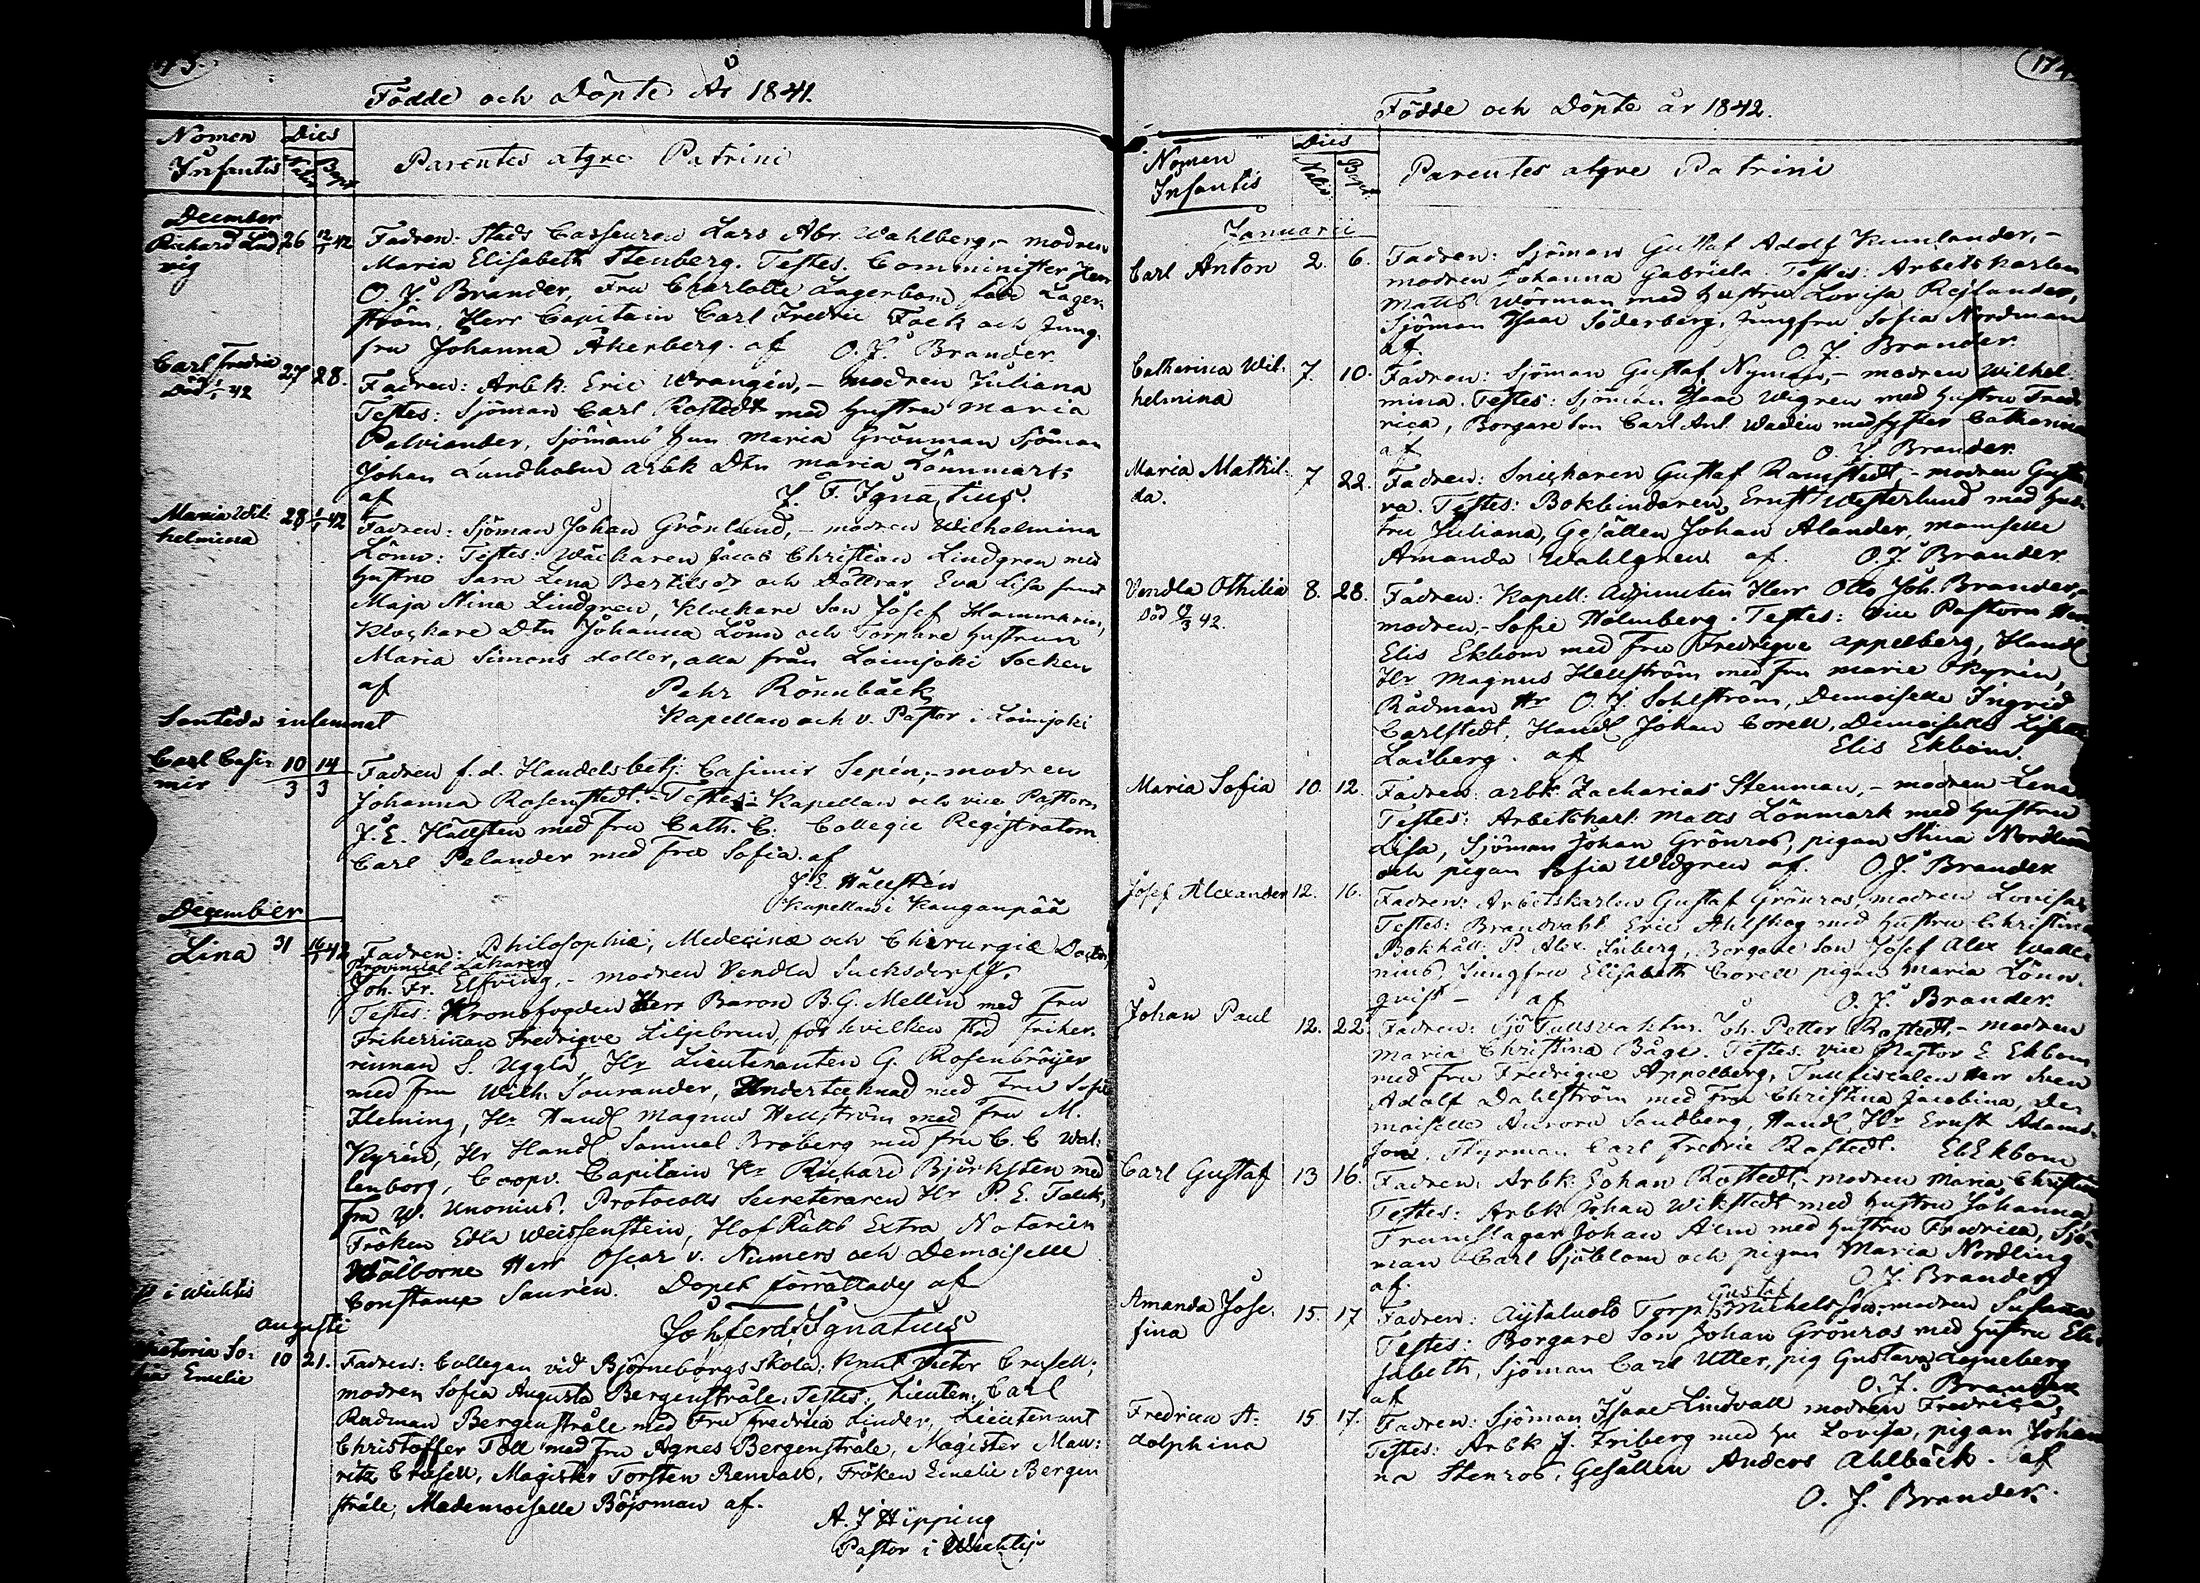 173.
Födde och Döpte År 1841.
Nomen Infantis
Dies
Natus Bapt
Parentes atque Patrini
December
Richard Lud 26 12/1 42 Fadren: Stads Casseuren Lars Abr. Wahlberg, - modren
vig Maria Elisabeth Stenberg. Testes. Comminister Herr
O. J. Brander, Fru Charlotte Lagerbom, född Lager
ström, Herr Capitain Carl Fredric Fock och Jung
fru Johanna Åkerberg. af O. J. Brander.
Carl Fredric 27 28. Fadren: Arbk: Eric Wrangén, - modren Juliana
Död 42 Testes: Sjöman Carl Rostedt med hustru Maria
Palviander, Sjömans hun Maria Grönman Sjöman
Johan Lundholm arbk Dtn Maria Lönnmark
af J. F. Ignatius.
Maria Wil 28 1/1 42 Fadren: Sjöman Johan Grönlund, - modren Wilhelmina
helmina Lönn: Testes: Wäckaren Jacob Christian Lindgren med
hustru Sara Lena Bertilsdr och Döttrar Eva Lisa samt
Maja Stina Lindgren, Klockare Son Josef Hammarin,
Klockare Dtn Johanna Lönn och Torpare hustrun
Maria Simons dotter, alla från Loimjoki Socken
af Pehr Rönnbäck
Kapellan och v. Pastor i Loimjoki
Sentida inlemnat
Carl Casi- 10/3 14/3 Fadren f.d. Handelsbetj: Casimir Sepén, - modren
mir Johanna Rosenstedt. - Testes: - Kapellan och vice Pastorn
J. E. Hällsten med fru Cath. C. Collegie Registratorn
Carl Pelander med fru Sofia. af
J. E. Hällstén
Kapellan i Kanganpää
December
Lina 31 16/1 42 Fadren: Philosophiæ, Medecinæ och Chirurgiæ Doctor,
Provincial Läkaren
Joh. Fr. Elfving, - modren Vendla Sucksdorff,
Testes: Kronofogden Herr Baron B. G. Mellin med Fru
Friherrinan Fredrique Liljebrun, för hvilken stod Friher
rinnan S. Uggla, Hr Lieutenanten G. Rosenbröijer
med fru Wilh. Sourander, Undertecknad med Fru Sofie
Fleming, Hr Handl Magnus Hellström med Fru M.
Kyrén, Hr Handl Samuel Broberg med fru C. C Wal
lenborg, Coopv. Capitain Hr Richard Björksten med
fru W. Unonius. Protocolls Secreteraren Hr P. E. Talck,
Fröken Edla Weissenstein, Hof Rätts Extra Notarien
Wälborne Herr Oscar v. Numers och Demoiselle
Constance Saurén. Dopet förrättades af
Joh Ferd: Ignatius
i Wichtis
Augusti
Victoria So- 10 21. Fadren: Collegan vid Björneborgs skola: Knut Victor Crusell;
fia Emelie modren Sofia Augusta Bergenstråle, Testes: Lieuten: Carl
Radman Bergenstråle med Fru Fredrica Linder, Lieutenant
Christoffer Toll med fru Agnes Bergenstråle, Magister Mau-
ritz Crusell, Magister Torsten Renvall, Fröken Emelie Bergen
stråle, Mademoiselle Böjsman af.
A. J. Hipping
Pastor i Wichtis
174
Födde och Döpte år 1842.
Nomen Infantis
Dies
Natus Bapt
Parentes atque Patrini
Januarii
Carl Anton 2. 6. Fadren: Sjöman Gustaf Adolf Kumlander, -
modren Johanna Gabriela. Testes: Arbetskarlen
Matts Wörman med hustru Lovisa Rejlander,
Sjöman Isaac Söderberg, Jungfru Sofia Nordman
af O. J. Brander.
Catharina Wil- 7. 10. Fadren: Sjöman Gustaf Nyman, - modren Wilhel-
helmina mina. Testes: Sjöman Isaac Wigren med hustru Fred-
rica, Borgare Son Carl Ant. Wadén med syster Catharina
af O. J. Brander.
Maria Mathil- 7 22. Fadren: Snickaren Gustaf Ramstedt, - modren Gusta
da. va. Testes: Bokbindaren, Ernst Westerlund med hus-
tru Juliana, Gesällen Johan Alander, mamselle
Amanda Wahlgren af. O. J. Brander.
Vendla Othilia 8. 28. Fadren: Kapell: Adjuncten Herr Otto Joh. Brander, -
Död /3 42. modren, - Sofie Holmberg. Testes: vice Pastorn Herr
Elis Ekbom med fru Fredrique Appelberg, Handl
Hr Magnus Hellström med fru Marie Kyrén,
Rådman Hr O. J. Sohlström, Demoiselle Ingrid
Carlstedt, Handl Johan Corell, Demoiselle
Loiberg. af Elis Ekbom.
Maria Sofia 10. 12. Fadren: arbk: Zacharias Stenman, - modren Lena
Testes: Arbetskarl: Matts Lönmark med hustru
Lisa, Sjöman Johan Grönros, pigan Stina Nordlund
och pigan Sofia Widgren af. O. J. Brander
Josef Alexander 12. 16. Fadren: Arbetskarlen Gustaf Grönros, modren Lovisa
Testes: Brandvakt Eric Ahlskog med hustru Christina
Bokhåll: P. Alex. Liberg, Borgare Son Josef Alex Walle
nius, Jungfru Elisabeth Corell pigan Maria Lönn-
quist - af O. J. Brander.
Johan Paul 12. 22. Fadren: Sjö Tullsvaktm. Joh. Petter Rostedt, - modren
Maria Christina Båge. Testes. vice Pastor E. Ekbom
med Fru Fredrique Appelberg, Tullfiscalen Herr Sven
Adolf Dahlström med Fru Christina Jacobina, De-
moiselle Aurora Sandberg, Handl Hr Ernst Adams-
son, Styrman Carl Fredric Rostedt. El Ekbom
Carl Gustaf 13 16. Fadren: Arbk: Johan Rostedt, - modren Maria Christina
Testes: Arbk Johan Wikstedt med hustru Johanna
Trumslagar Johan Alm med hustru Fredrica, Sjö-
man Carl Sjöblom och pigan Maria Nordling
af. O. J. Brander
Amanda Jose- 15. 17 Fadren: Äijtaluoto Torp: Gustaf Michelsson, modren Susanna
fina Testes: Borgare Son Johan Grönros med hustru Eli-
sabeth, Sjöman Carl Utter, pig Gustava Legneberg
af O. J. Brander
Fredrica A- 15 17. Fadren: Sjöman Isaac Lindvall modren Fredrica,
dolphina Testes: Arbk J. Friberg med hu Lovisa, pigan Johan
na Stenros, Gesällen Anders Ahlbäck. af
O. J. Brander.